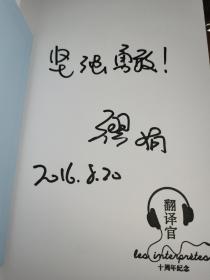 坚强勇敢！
缪娟
2016.8.20
翻译官
les interprètes
十周年纪念